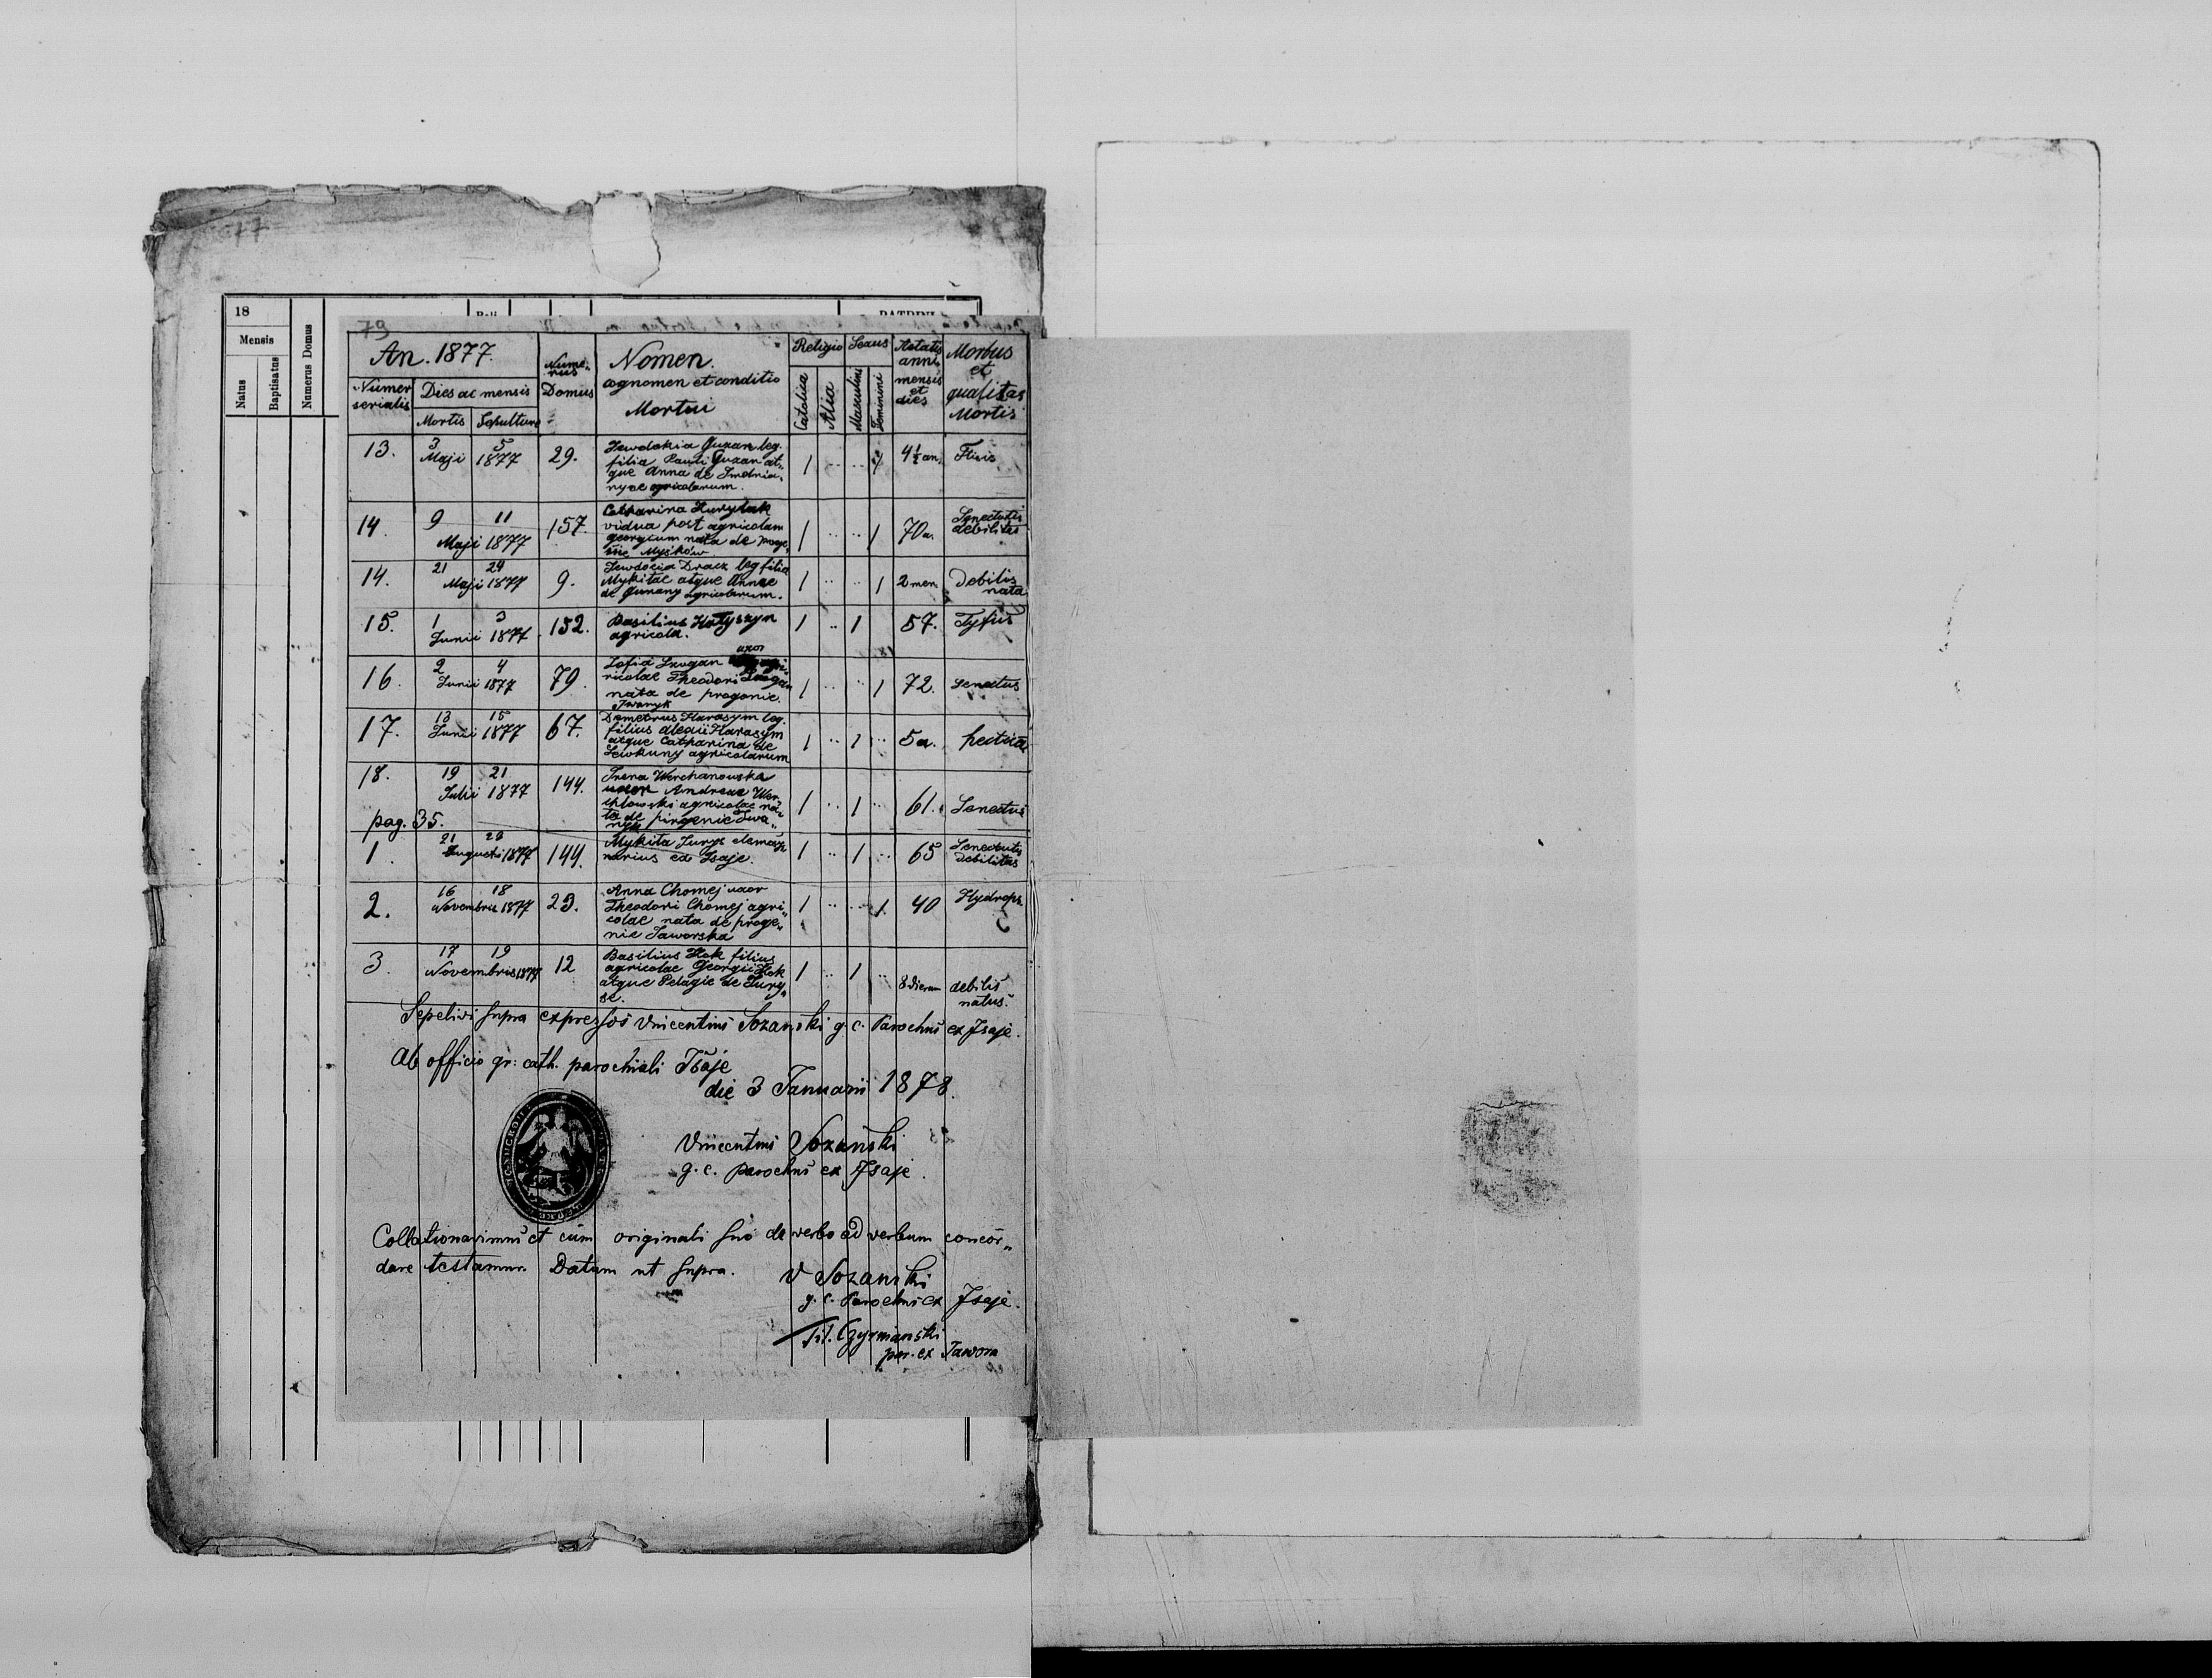 77
18
Mensis
Natus
Baptisatus
Numerus Domus
PATRINI
79
An. 1877.
Numerus Domus
Nomen
cognomen et conditio
Mortui
Religio
Catolica
Alia
Sexus
Masculini
Feminini
Aetatis
anni
mensis
et
dies
Morbus
et
qualitas
Mortis
Numer serialis
Dies ac mensis
Mortis
Sepulturae
13. 3 5 Maji 1877 29.
Jewdokia Guran leg.
filia Pauli Guran at-
que Anna de
agricolarum.
1 1 4½ an.
14. 9 11 Maji 1877 157.
Catharina Hurylak
vidua post agricolam
georgium nata de proge-
nie Myśków
1 1 70 a. Senectutis debilitas
14. 21 24 Maji 1877 9.
Jewdocia Dracz leg filia
Mykitae atque Annae
de Gurany agricolarum.
1 1 2 men. Debilis nata
15. 1 3 Junii 1877 132.
Basilius
agricola.
1 1 57. Tyfus
16. 2 4 Junii 1877 79.
Zofia uxor
ricolae Theodori
nata de progenie
Iwanyk
1 1 72. Senectus
17. 13 15 Junii 1877 67.
Demetrius Harasym leg.
filius Alexii Harasym
atque Catharina de
Lewkuny agricolarum
1 1 5 a. hectica
18. 19 21 Julii 1877 144.
Irena Werchanowska
uxor Andreae Wer-
chlowski agricolae na-
ta de pirgenie Iwa-
nyk
1 1 61. Senectus
pag. 35.
1. 21 23 Augusti 1877 144.
Mykita Jurys elemozy-
narius ex Isaje.
1 1 65 Senectutis Debilitas
2. 16 18 Novembris 1877 23.
Anna Chomej uxor
Theodori Chomej agri-
colae nata de proge-
nie Jaworska
1 1 40 Hydrops
3. 17 19 Novembris 1877 12
Basilius Hok filius
agricolae Georgii Hok
atque Pelagie de Jury-
se.
1 1 8 dierum debilis natus.
Sepelivi supra expressos Vincentius Sozanski g. c. Parochus ex Isaje.
Ab officio gr: cath. parochiali Isaje
die 3 Januarii 1878.
Vincentius Sozański
g. c. parochus ex Isaje.
Collationavimus et cum originali suo de verbo ad verbum concor-
dare testamur. Datum ut supra.
V Sozanski
g. c. Parochus ex Isaje.
par. ex Jawora